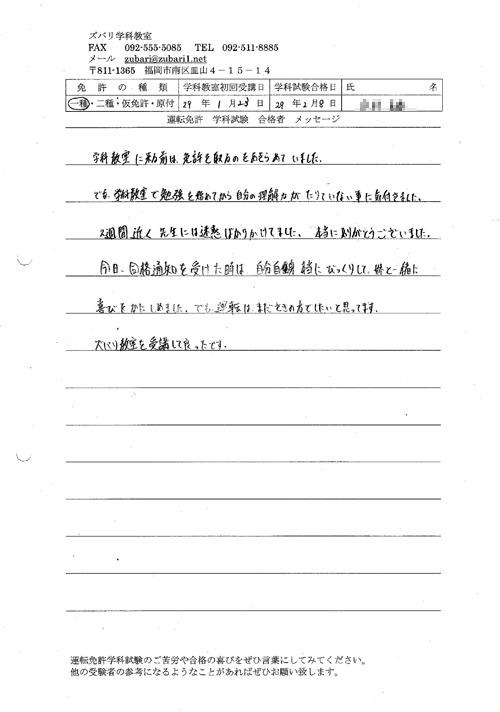 ズバリ学科教室
FAX 092-555-5085 TEL 092-511-8885
メール zubari@zubari1.net
〒811-1365 福岡市南区皿山4－15－14
免許の種類 学科教室初回受講日 学科試験合格日 氏名
一種・二種・仮免許・原付 29年1月23日 29年2月8日
運転免許 学科試験 合格者 メッセージ
学科教室に来る前は、免許を取るのをあきらめていました。
でも、学科教室で勉強を始めてから自分の理解力がたりていない事に気付きました。
2週間近く先生には迷惑ばかりかけてました。本当にありがとうございました。
今日、合格通知を受けた時は、自分自身本当にびっくりして、姉と一緒に
喜びをかたしめました。でも運転は、まだときの方でしたいと思ってます。
ズバリ教室を受講して良かったです。
運転免許学科試験のご苦労や合格の喜びをぜひ言葉にしてみてください。
他の受験者の参考になるようなことがあればぜひお願い致します。